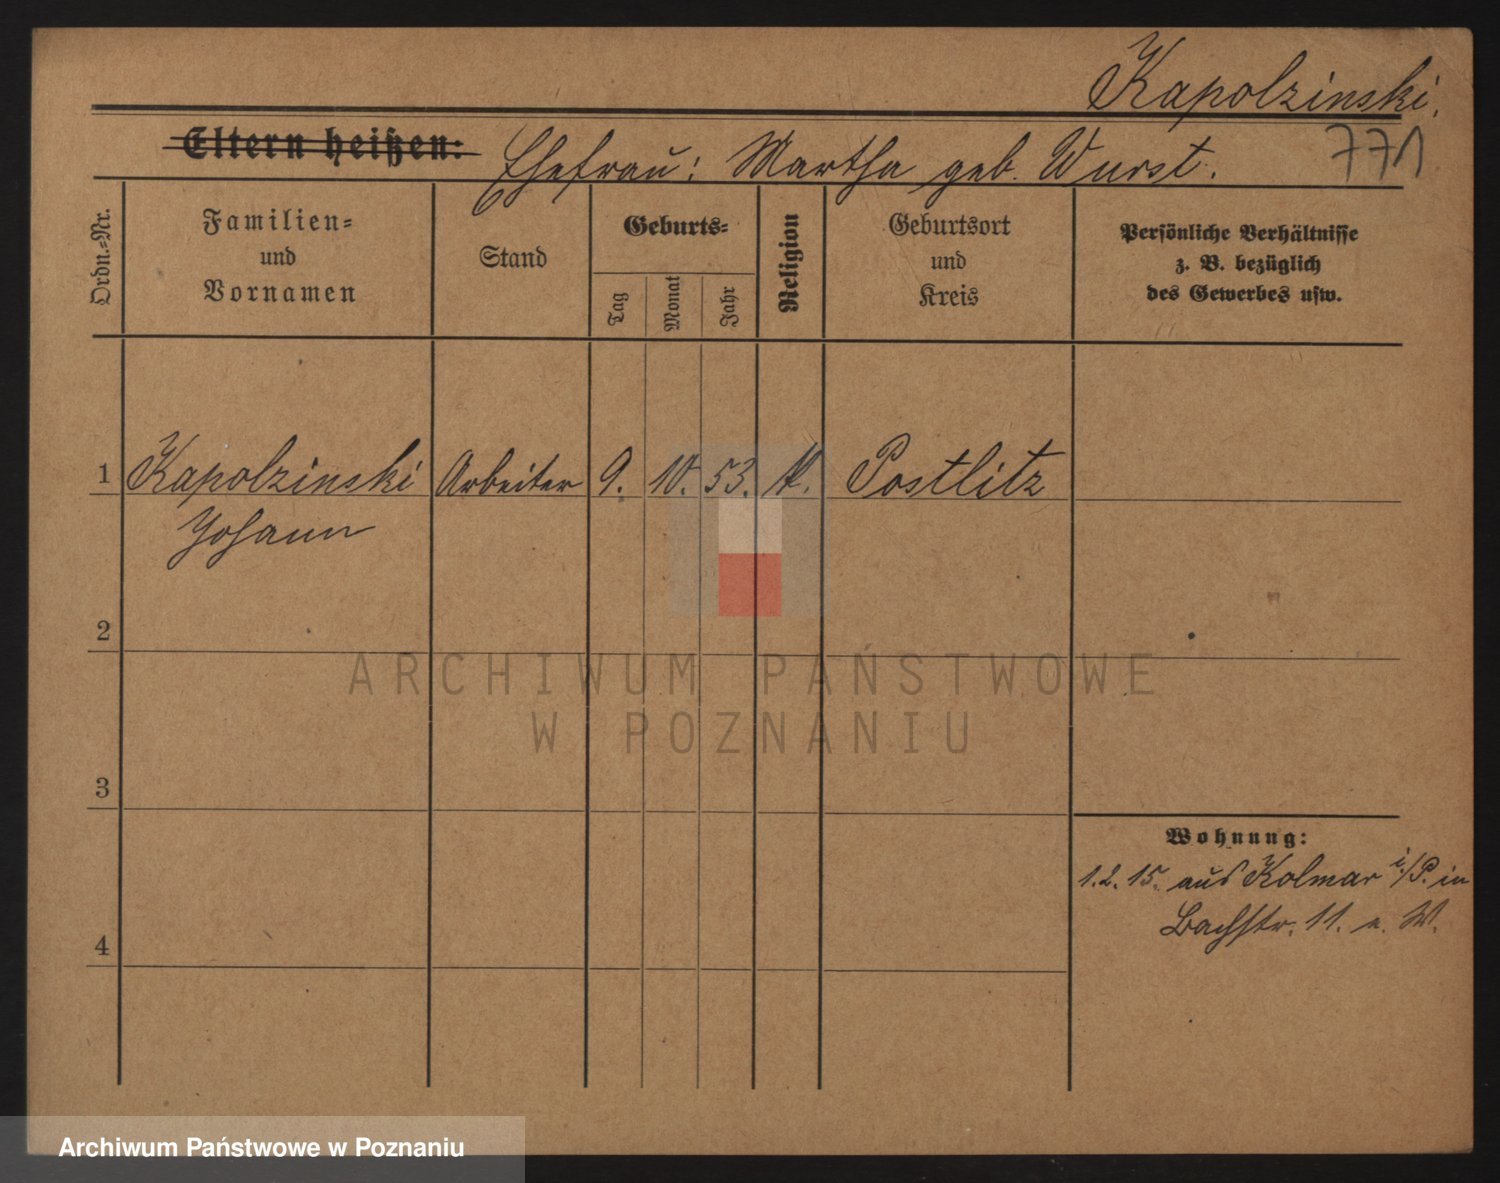 Kapolzinski.
Eltern heißen: Ehefrau: Martha geb. Wurst. 771
Ordn.-Nr.
Familien-
und
Vornamen
Stand
Geburts-
Tag
Monat
Jahr
Religion
Geburtsort
und
Kreis
Persönliche Verhältnisse
z. B. bezüglich
des Gewerbes usw.
1 Kapolzinski Arbeiter 9. 10. 53. K. Postlitz
Johann
2
3
4
Wohnung:
1.2.15. aus Kolmar i/P. in
Bachstr. 11. e. W.
ARCHIWUM PAŃSTWOWE
W POZNANIU
Archiwum Państwowe w Poznaniu